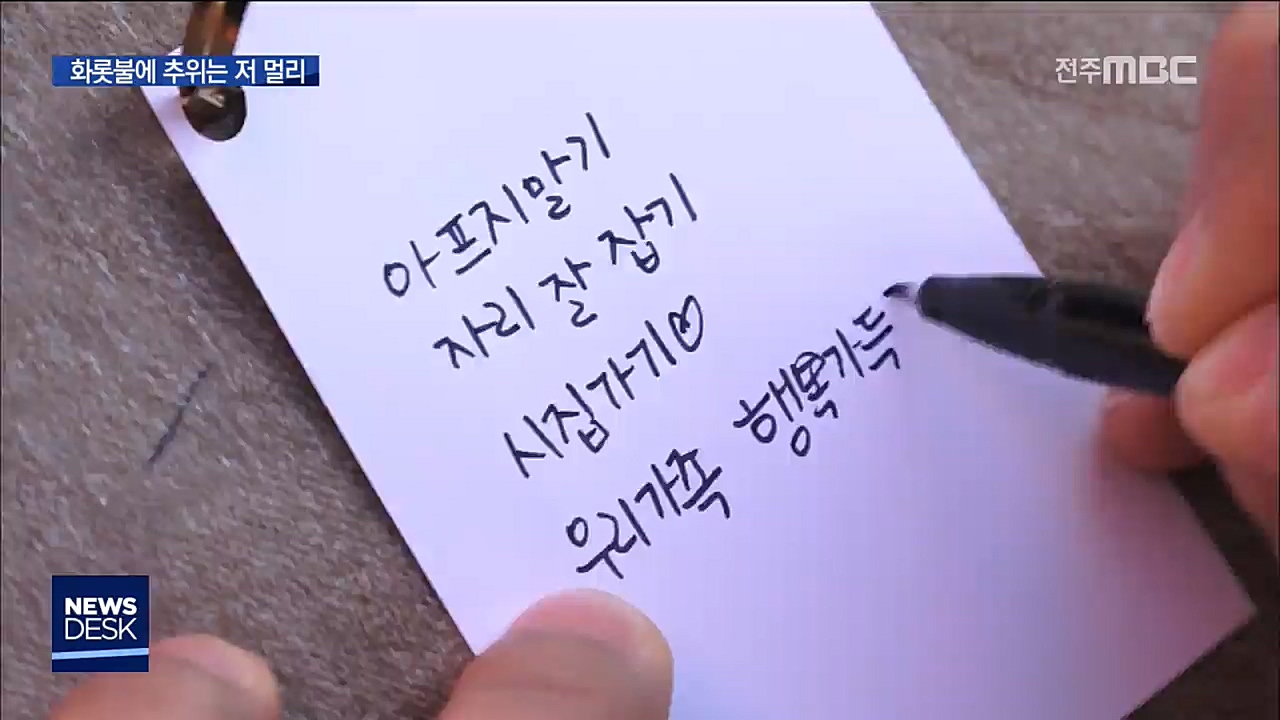 화롯불에 추위는 저 멀리
전주MBC
아프지말기
자리 잘 잡기
시집가기♡
우리가족 행복가득
NEWS
DESK